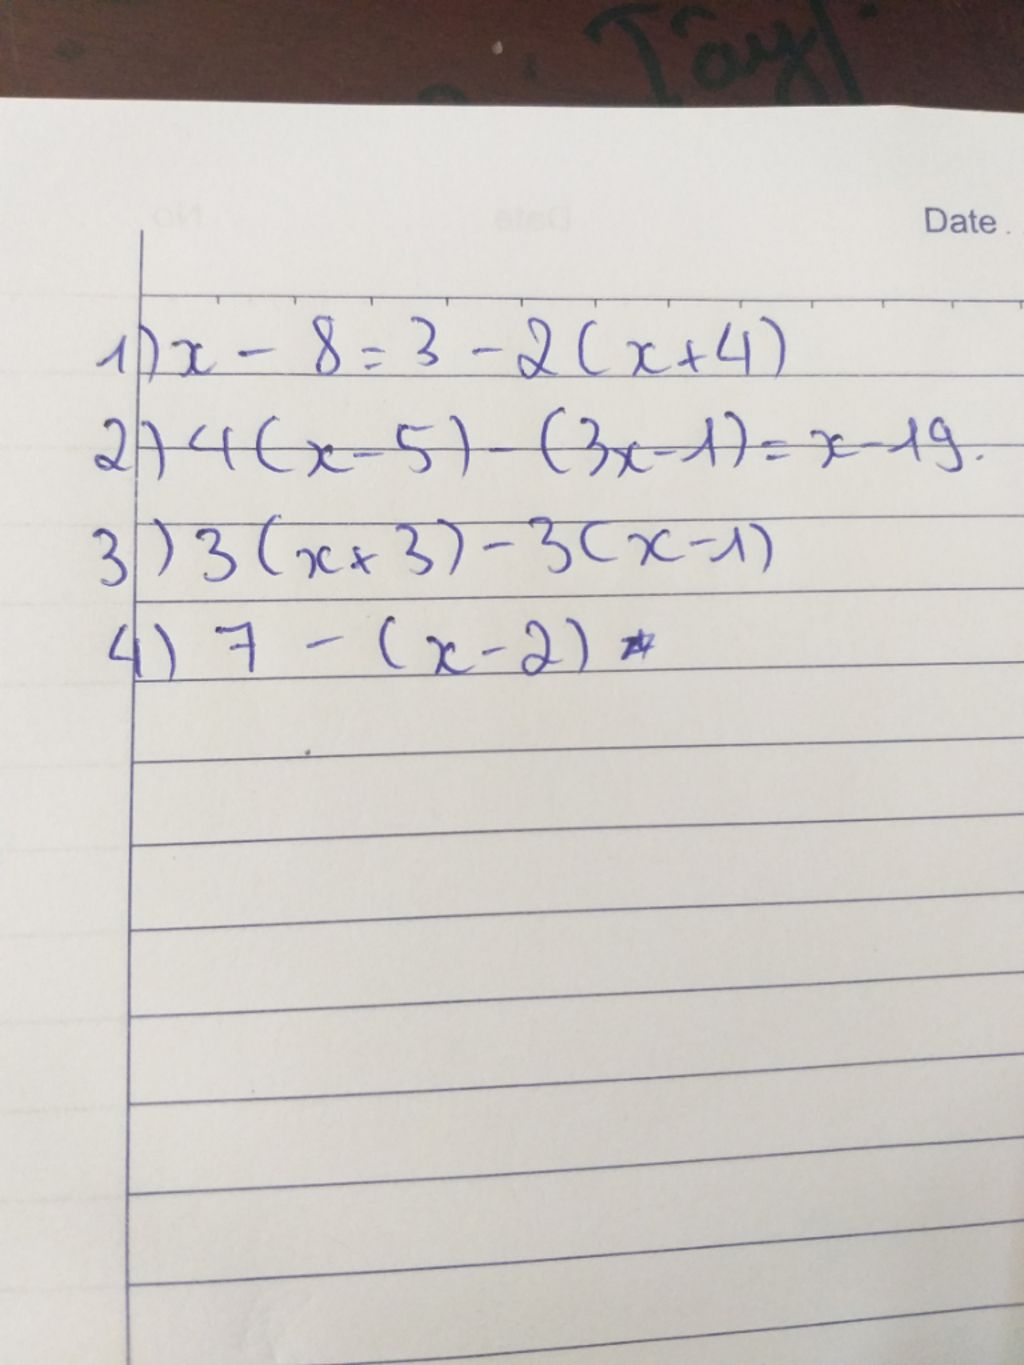 Tây
Date .
1) x - 8 = 3 - 2(x+4)
2) 4(x-5) - (3x-1) = x-19.
3) 3(x+3) - 3(x-1)
4) 7 - (x-2)